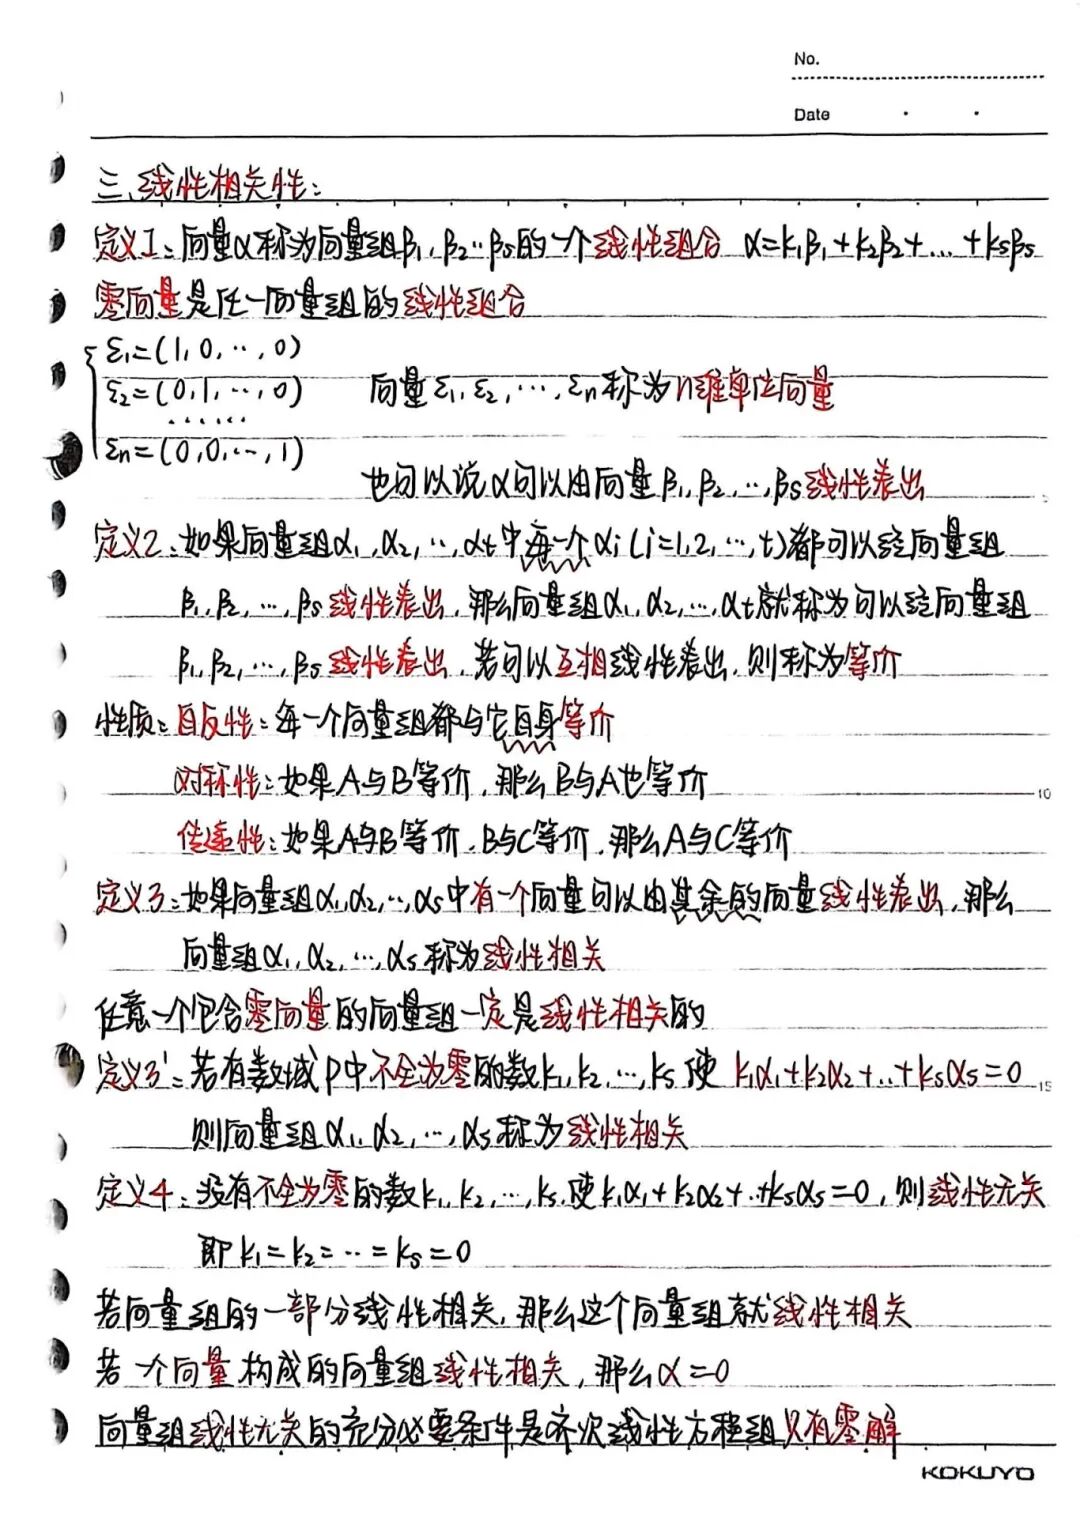 No.
Date
三、线性相关性:
定义1:向量α称为向量组β₁,β₂…βs的一个线性组合 α=k₁β₁+k₂β₂+…+ksβs
零向量是任一向量组的线性组合
ε₁=(1,0,…,0)
ε₂=(0,1,…,0)
……
εn=(0,0,…,1)
向量ε₁,ε₂,…,εn称为n维单位向量
也可以说α可以由向量β₁,β₂,…,βs线性表出
定义2:如果向量组α₁,α₂,…,αt中每一个αi(i=1,2,…,t)都可以经向量组
β₁,β₂,…,βs线性表出,那么向量组α₁,α₂,…,αt就称为可以经向量组
β₁,β₂,…,βs线性表出,若可以互相线性表出,则称为等价
性质:自反性:每一个向量组都与它自身等价
对称性:如果A与B等价,那么B与A也等价
10
传递性:如果A与B等价,B与C等价,那么A与C等价
定义3:如果向量组α₁,α₂,…,αs中有一个向量可以由其余的向量线性表出,那么
向量组α₁,α₂,…,αs称为线性相关
任意一个包含零向量的向量组一定是线性相关的
定义3':若有数域P中不全为零的数k₁,k₂,…,ks,使 k₁α₁+k₂α₂+…+ksαs=0
15
则向量组α₁,α₂,…,αs称为线性相关
定义4:没有不全为零的数k₁,k₂,…,ks,使k₁α₁+k₂α₂+…+ksαs=0,则线性无关
即k₁=k₂=…=ks=0
若向量组的一部分线性相关,那么这个向量组就线性相关
若一个向量构成的向量组线性相关,那么α=0
向量组线性无关的充分必要条件是齐次线性方程组只有零解
KOKUYO